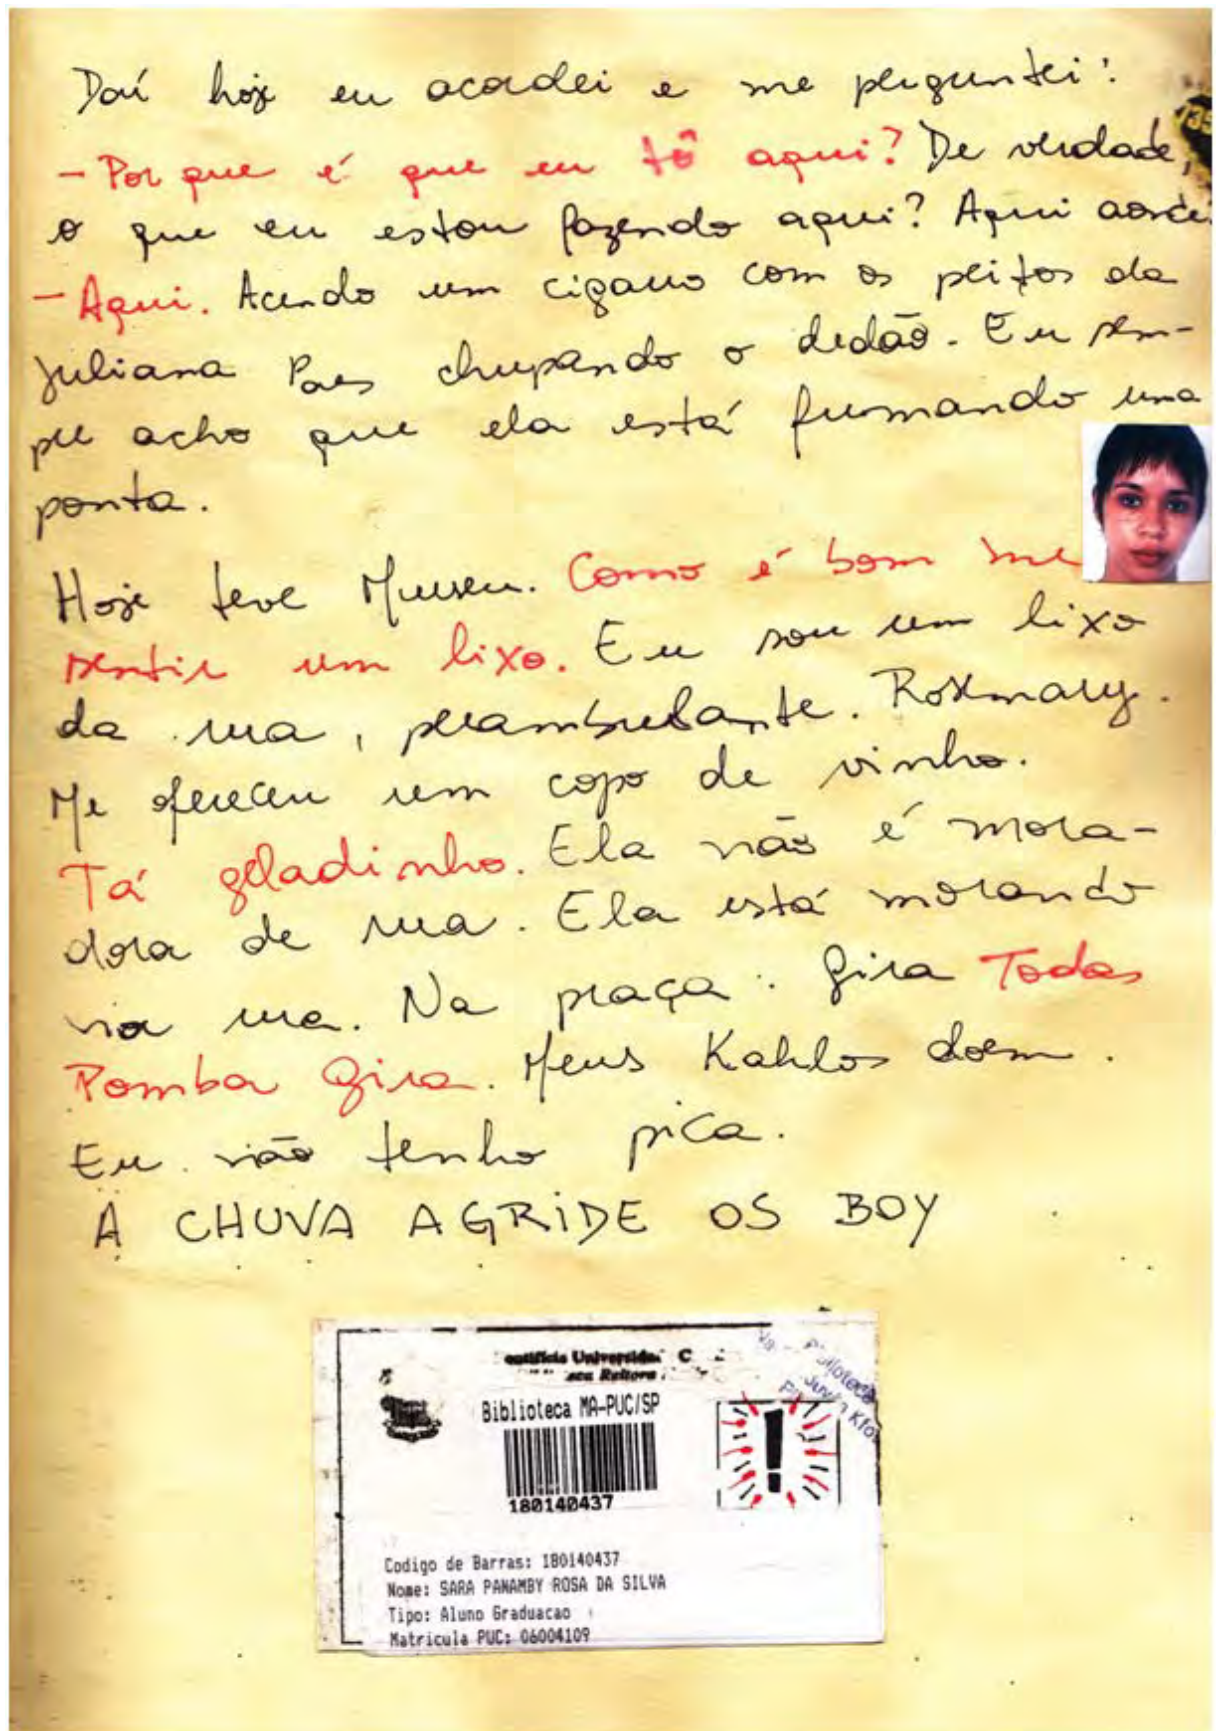 Daí hoje eu acordei e me perguntei:
- Por que é que eu tô aqui? De verdade,
o que eu estou fazendo aqui? Aqui
- Aqui. Acendo um cigarro com os peitos da
Juliana Paes chupando o dedão. Eu sem-
pre acho que ela está fumando uma
ponta.
Hoje teve Museu. Como é bom me
sentir um lixo. Eu sou um lixo
da rua, perambulante. Rosemary.
Me ofereceu um copo de vinho.
Tá geladinho. Ela não é mora-
dora de rua. Ela está morando
na rua. Na praça. Gira Todas
Pomba Gira. Meus Kahlos doem.
Eu não tenho pica.
A CHUVA AGRIDE OS BOY
Biblioteca MA-PUC/SP
180140437
Codigo de Barras: 180140437
Nome: SARA PANAMBY ROSA DA SILVA
Tipo: Aluno Graduacao
Matricula PUC: 06004109